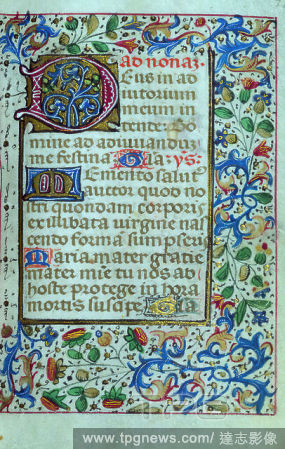 ad nonaz
Deus in ad
iutorium
meum in
tende Do
mine ad adiuuandum
me festina Gla ys:
Memento salutis
auctor quod no
stri quondam corporis
ex illibata virgine nas
cendo formam sumpseris
Maria mater gratie
mater mie tu nos ab
hoste protege in hora
mortis suscipe Gla
www.tpgnews.com/ 達志影像